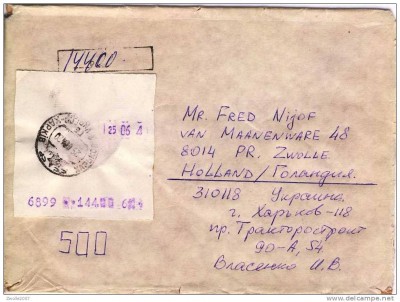 14400
25 06 4
6899 14400
500
Mr. Fred Nijof
van Maanenware 48
8014 PR. Zwolle
Holland/Голандия.
310118 Украина
г. Харьков-118
пр. Тракторостроит
90-А, 54
Власенко И.В.